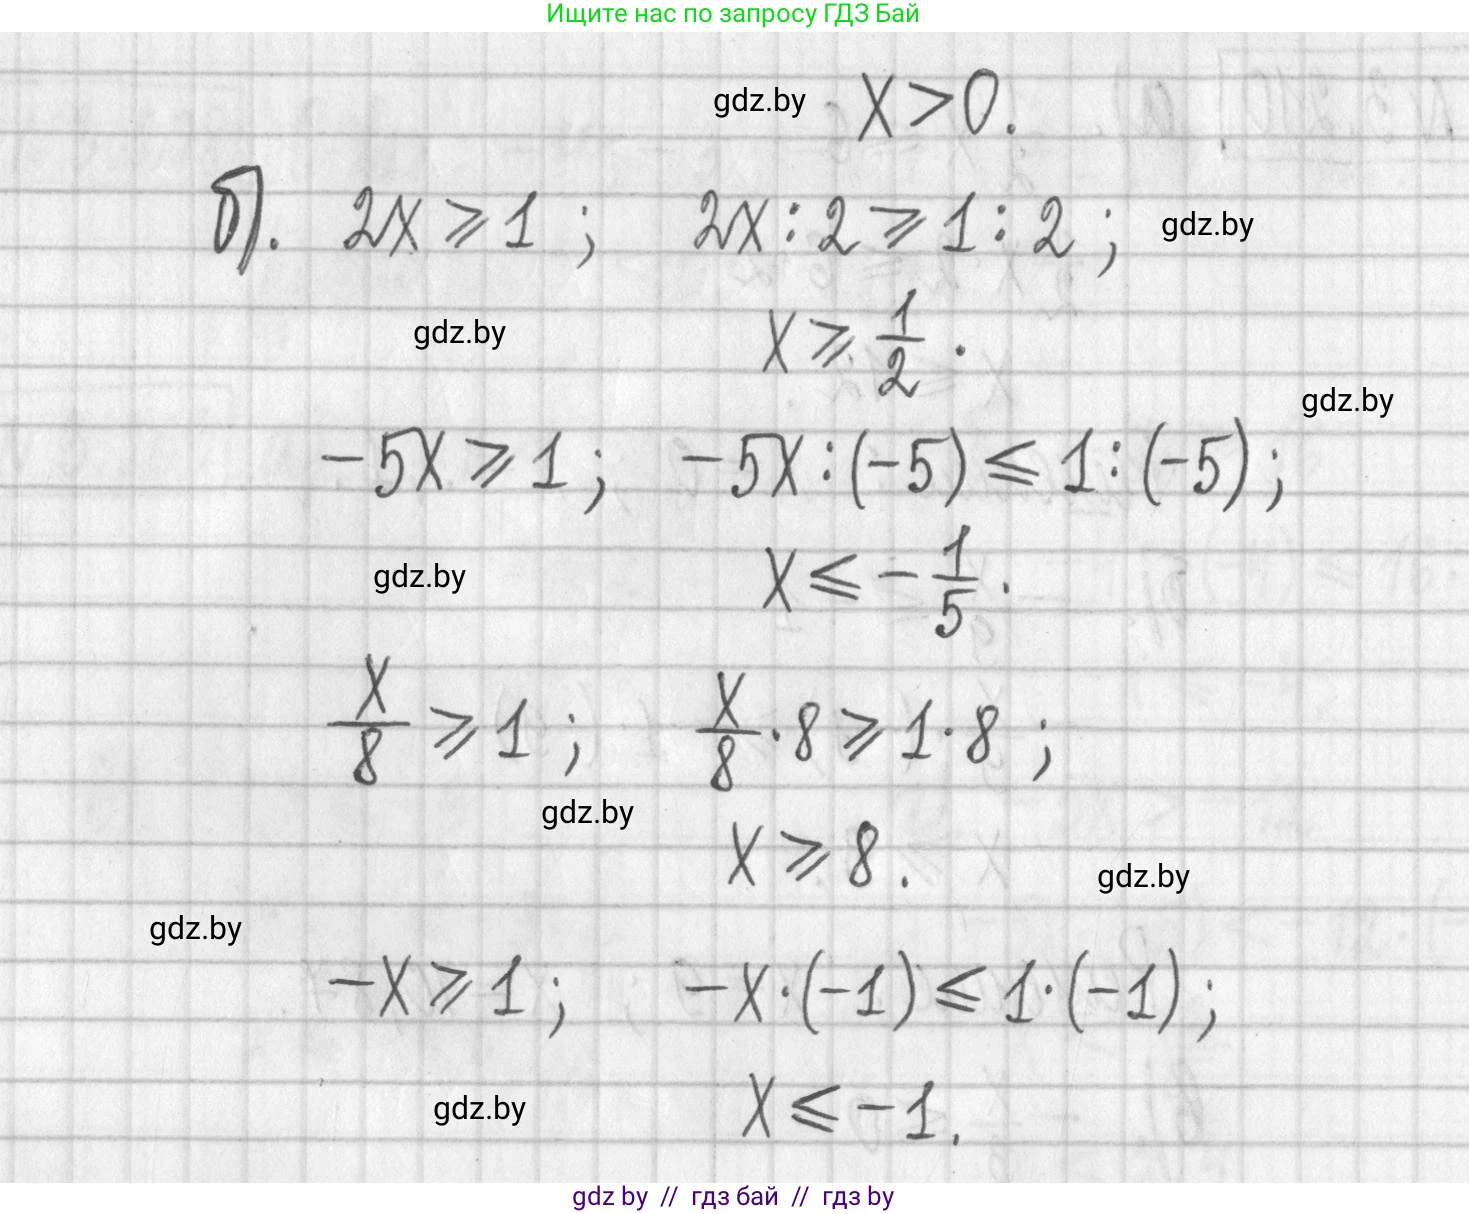 Ищите нас по запросу ГДЗ Бай
gdz.by x > 0.
б). 2x ⩾ 1 ; 2x : 2 ⩾ 1 : 2 ; gdz.by
gdz.by x ⩾ 1/2 .
gdz.by
-5x ⩾ 1 ; -5x : (-5) ⩽ 1 : (-5) ;
gdz.by x ⩽ - 1/5 .
x/8 ⩾ 1 ; x/8 · 8 ⩾ 1 · 8 ;
gdz.by
x ⩾ 8 .
gdz.by
gdz.by
-x ⩾ 1 ; -x · (-1) ⩽ 1 · (-1) ;
gdz.by x ⩽ -1 .
gdz by // гдз бай // гдз by